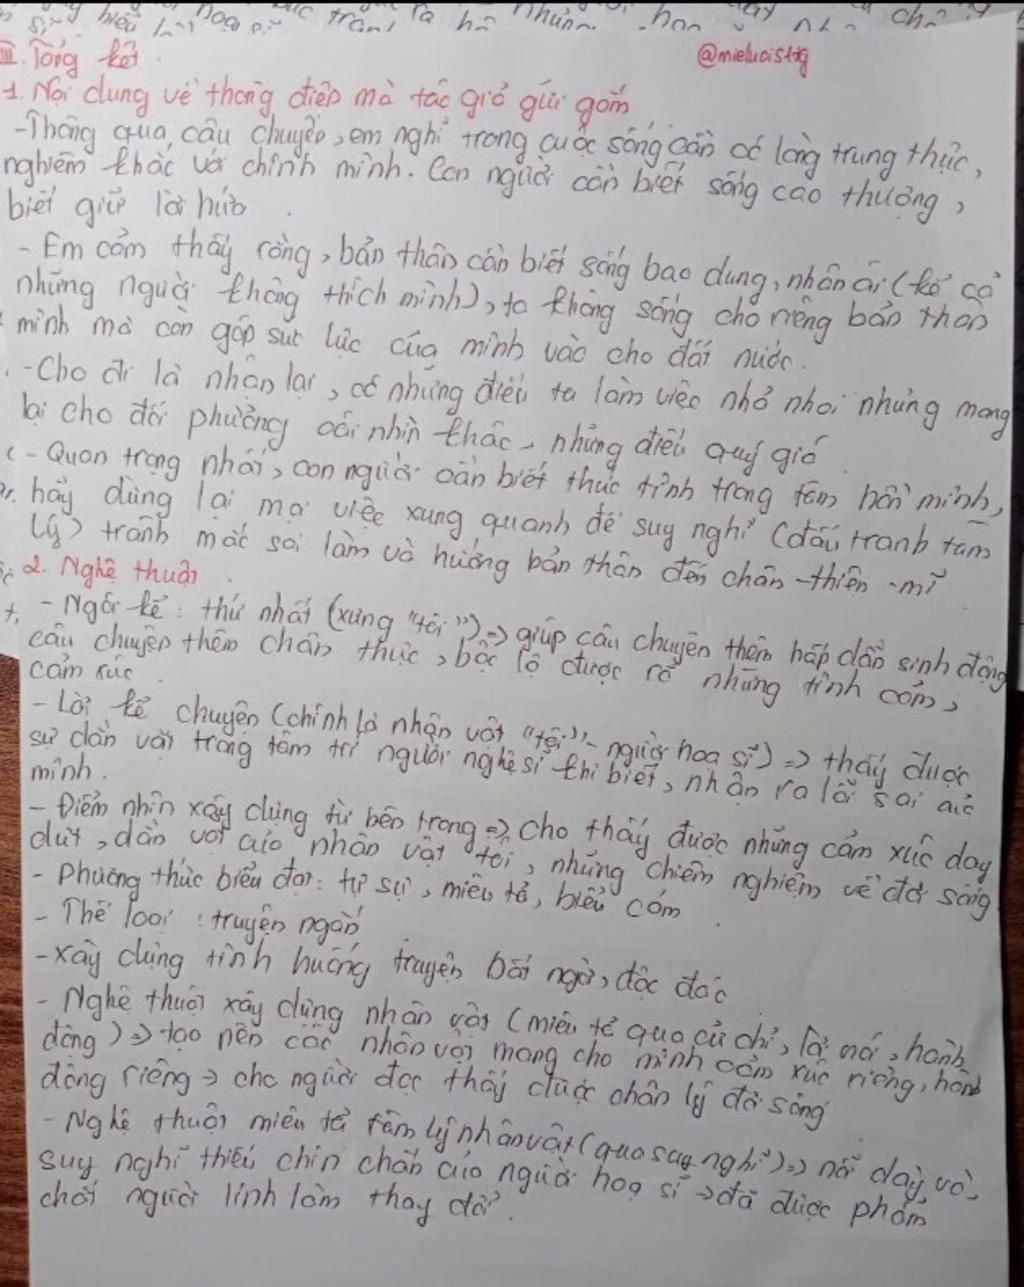 III. Tổng kết.
@mieluoistg
1. Nội dung về thông điệp mà tác giả gửi gắm
- Thông qua câu chuyện, em nghĩ trong cuộc sống cần có lòng trung thực,
nghiêm khắc với chính mình. Con người cần biết sống cao thượng,
biết giữ lời hứa.
- Em cảm thấy rằng, bản thân cần biết sống bao dung, nhân ái (kể cả
những người không thích mình), ta không sống cho riêng bản thân
mình mà còn góp sức lực của mình vào cho đất nước.
- Cho đi là nhận lại, có những điều ta làm việc nhỏ nhoi nhưng mang
lại cho đối phương cái nhìn khác, những điều quý giá.
- Quan trọng nhất, con người cần biết thức tỉnh trong tâm hồn mình,
hãy dừng lại mọi việc xung quanh để suy nghĩ (đấu tranh tâm
lý) tránh mắc sai lầm và hướng bản thân đến chân-thiện-mĩ
2. Nghệ thuật.
- Ngôi kể: thứ nhất (xưng "tôi") => giúp câu chuyện thêm hấp dẫn sinh động
câu chuyện thêm chân thực, bộc lộ được rõ những tình cảm,
cảm xúc.
- Lời kể chuyện (chính là nhân vật "tôi" - người hoạ sĩ) => thấy được
sự dằn vặt trong tâm trí người nghệ sĩ khi biết, nhận ra lỗi sai của
mình.
- Điểm nhìn xây dựng từ bên trong => cho thấy được những cảm xúc day
dứt, dằn vặt của nhân vật tôi, những chiêm nghiệm về đời sống
- Phương thức biểu đạt: tự sự, miêu tả, biểu cảm.
- Thể loại: truyện ngắn
- Xây dựng tình huống truyện bất ngờ, độc đáo
- Nghệ thuật xây dựng nhân vật (miêu tả qua cử chỉ, lời nói, hành
động) => tạo nên các nhân vật mang cho mình cảm xúc riêng, hành
động riêng -> cho người đọc thấy được chân lý đời sống
- Nghệ thuật miêu tả tâm lý nhân vật (qua suy nghĩ) => nỗi dày vò,
suy nghĩ thiếu chín chắn của người hoạ sĩ -> đã được phẩm
chất người lính làm thay đổi.